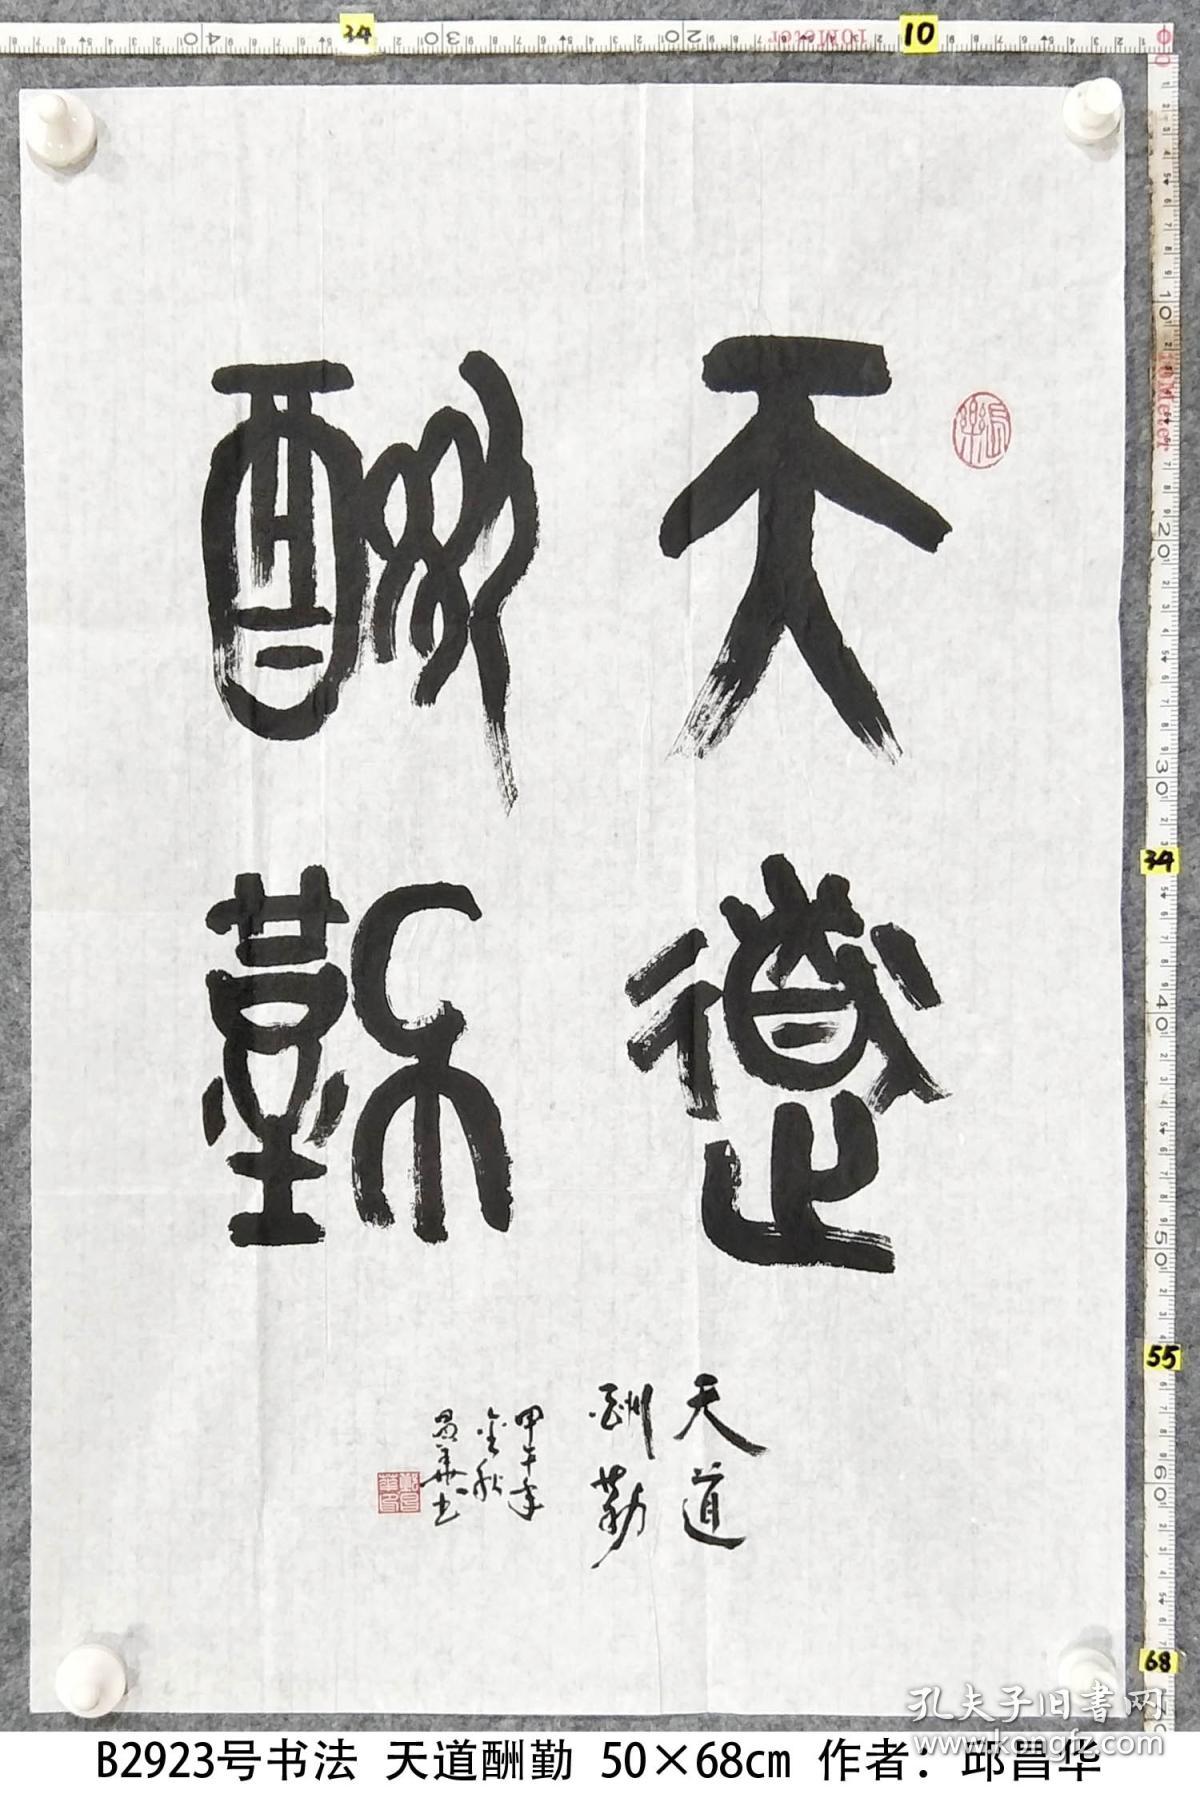 天道
酬勤
天道
酬勤
甲午年
金秋
昌华书
長樂
10Meter
10
34
34
55
68
孔夫子旧书网
www.kongfz.com
B2923号书法 天道酬勤 50×68cm 作者：邱昌华